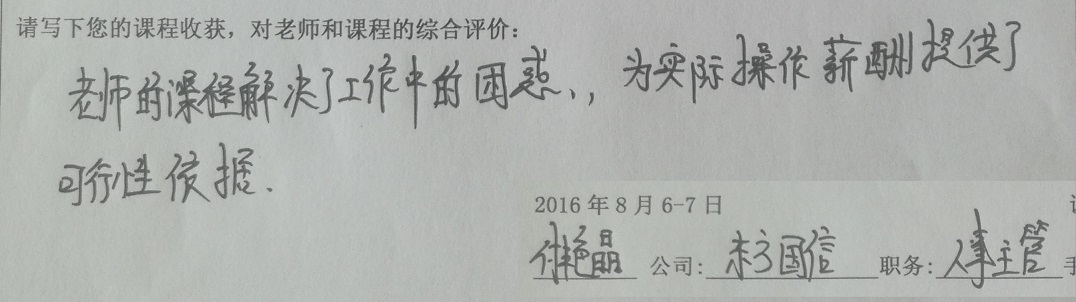 请写下您的课程收获，对老师和课程的综合评价：
老师的课程解决了工作中的困惑，，为实际操作薪酬提供了
可行性依据.
2016年8月6-7日
付艳晶 公司：东方国信 职务：人事主管